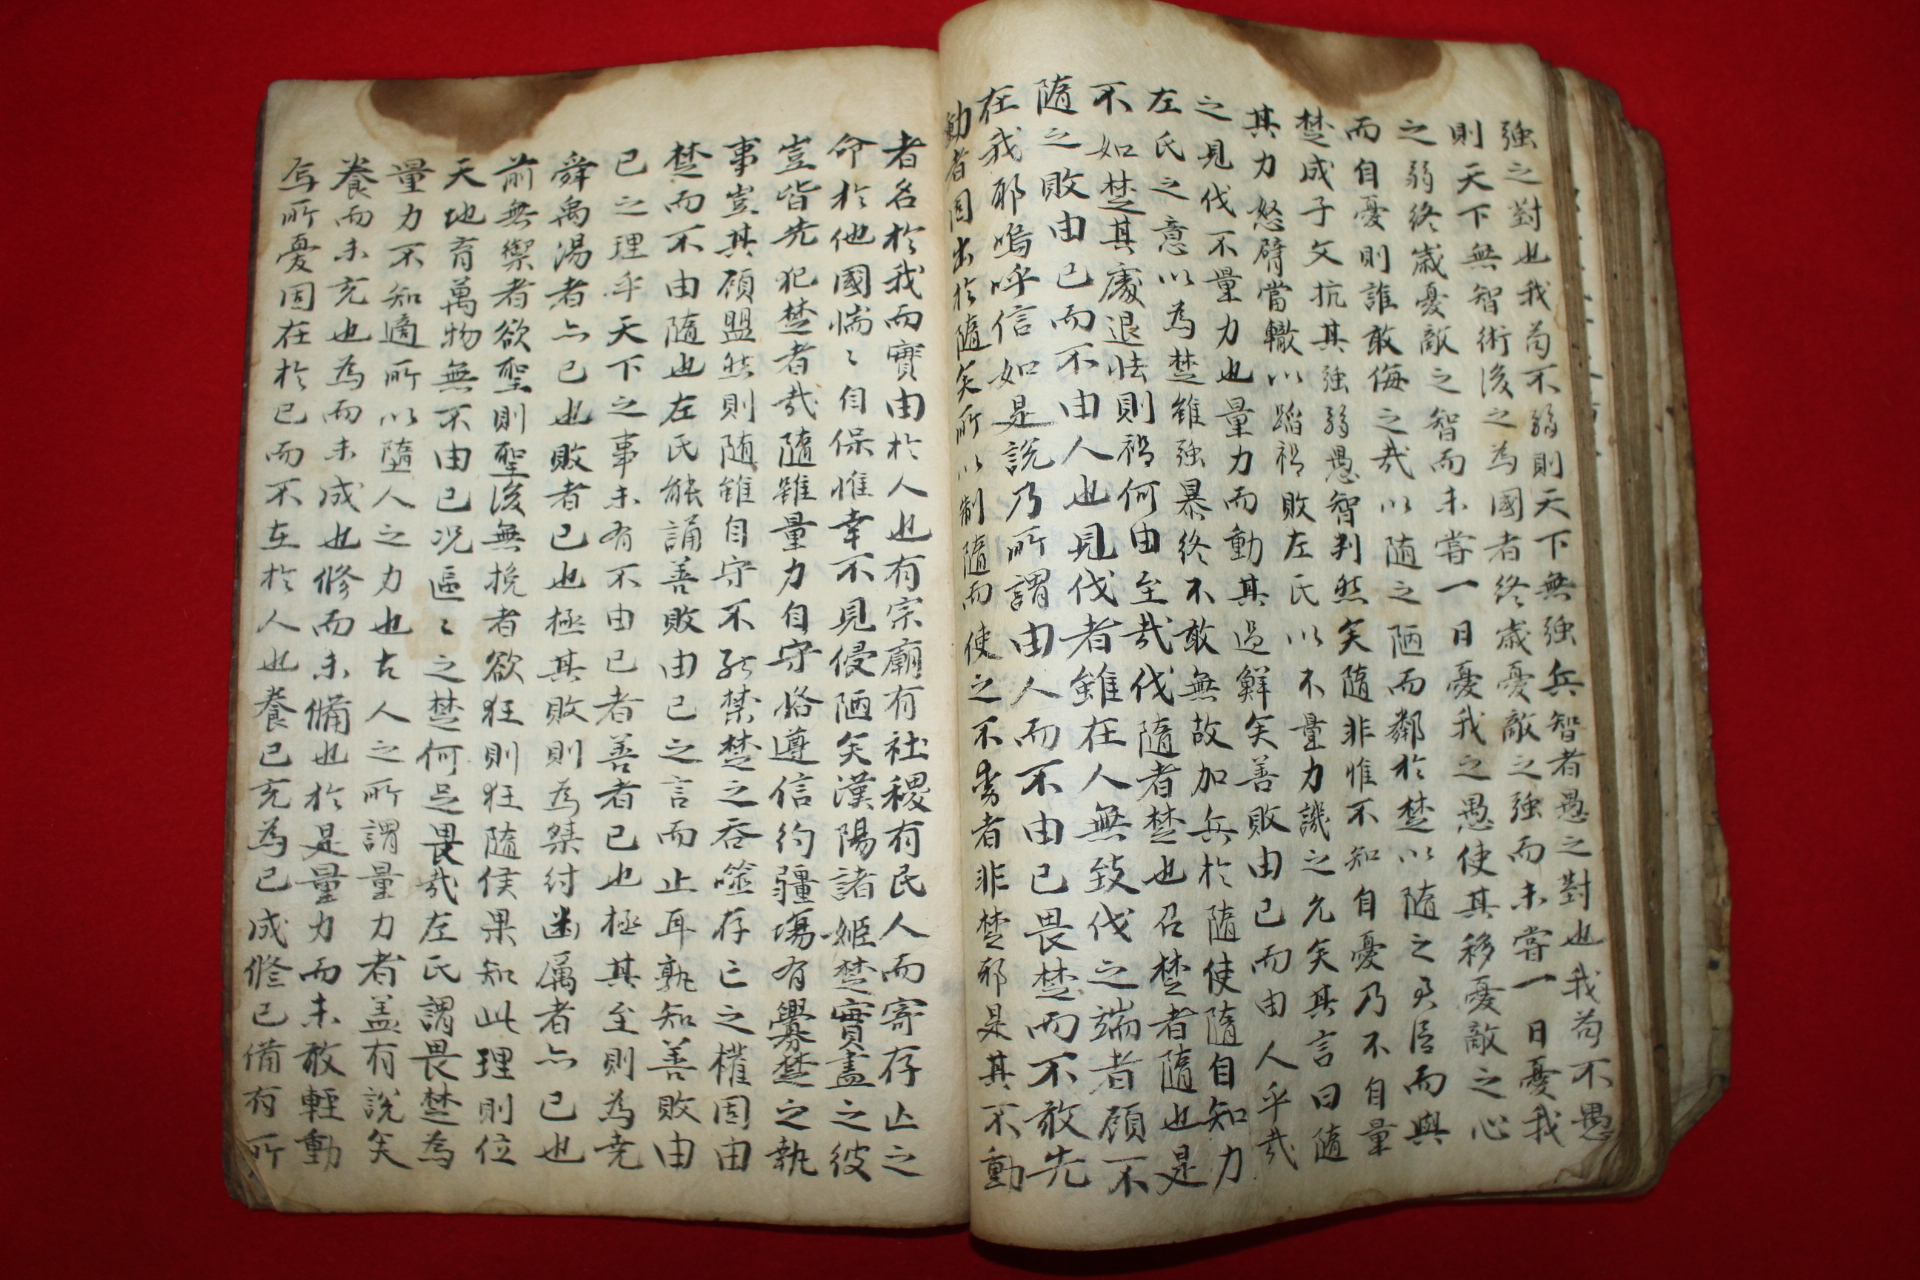 強之對也我苟不弱則天下無強兵智者愚之對也我苟不愚
則天下無智術後之為國者終歲憂敵之強而未嘗一日憂我
之弱終歲憂敵之智而未嘗一日憂我之愚使其移憂敵之心
而自憂則誰敢侮之哉以随之陋而鄰於楚以隨之君臣而與
楚成子文抗其強弱愚智判然矣隨非惟不知自憂乃不自量
其力怒臂當轍以蹈禍敗左氏以不量力譏之允矣其言曰隨
之見伐不量力也量力而動其過鮮矣善敗由己而由人乎哉
左氏之意以為楚雖強暴終不敢無故加兵於隨使隨自知力
不如楚其處退怯則禍何由至哉伐隨者楚也召楚者隨也是
隨之敗由己而不由人也見伐者雖在人無致伐之端者顧不
在我邪嗚呼信如是說乃所謂由人而不由已畏楚而不敢先
動者固出於隨矣所以制隨而使之不動者非楚邪是其不動
者名於我而實由於人也有宗廟有社稷有民人而寄存亡之
命於他國惴〻自保惟幸不見侵陋矣漢陽諸姬楚實盡之彼
豈皆先犯楚者哉隨雖量力自守恪遵信約疆場有釁楚之執
事豈其顧盟然則随雖自守不能禁楚之吞噬存亡之權固由
楚而不由隨也左氏能誦善敗由已之言而止耳孰知善敗由
已之理乎天下之事未有不由已者善者已也極其至則為尭
舜禹湯者亦已也敗者已也極其敗則為桀紂幽厲者亦已也
前無禦者欲聖則聖後無挽者欲狂則狂隨侯果知此理則位
天地育萬物無不由已况區〻之楚何足畏哉左氏謂畏楚為
量力不知適所以墮人之力也古人之所謂量力者盖有說矣
養而未充也為而未成也修而未備也於是量力而未敢輕動
焉所憂固在於已而不在於人也養已充為已成修已備有所